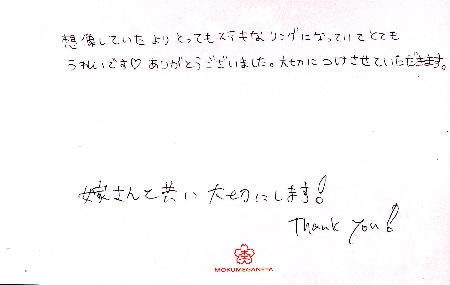 想像していたよりとってもステキなリングになっていてとても
うれしいです♡ ありがとうございました。大切につけさせていただきます。
嫁さんと共に大切にします!
Thank you!
MOKUMEGANEYA